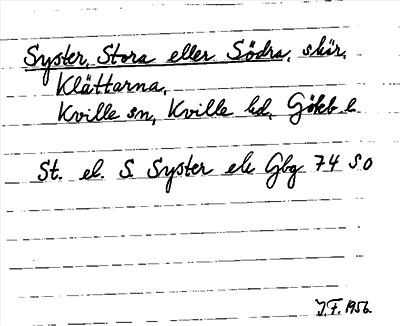 Syster, Stora eller Södra, skär,
Klåttarna,
Kville sn, Kville hd, Göteb l.
St. el. S. Syster ek Gbg 74 SO
J.F. 1956.